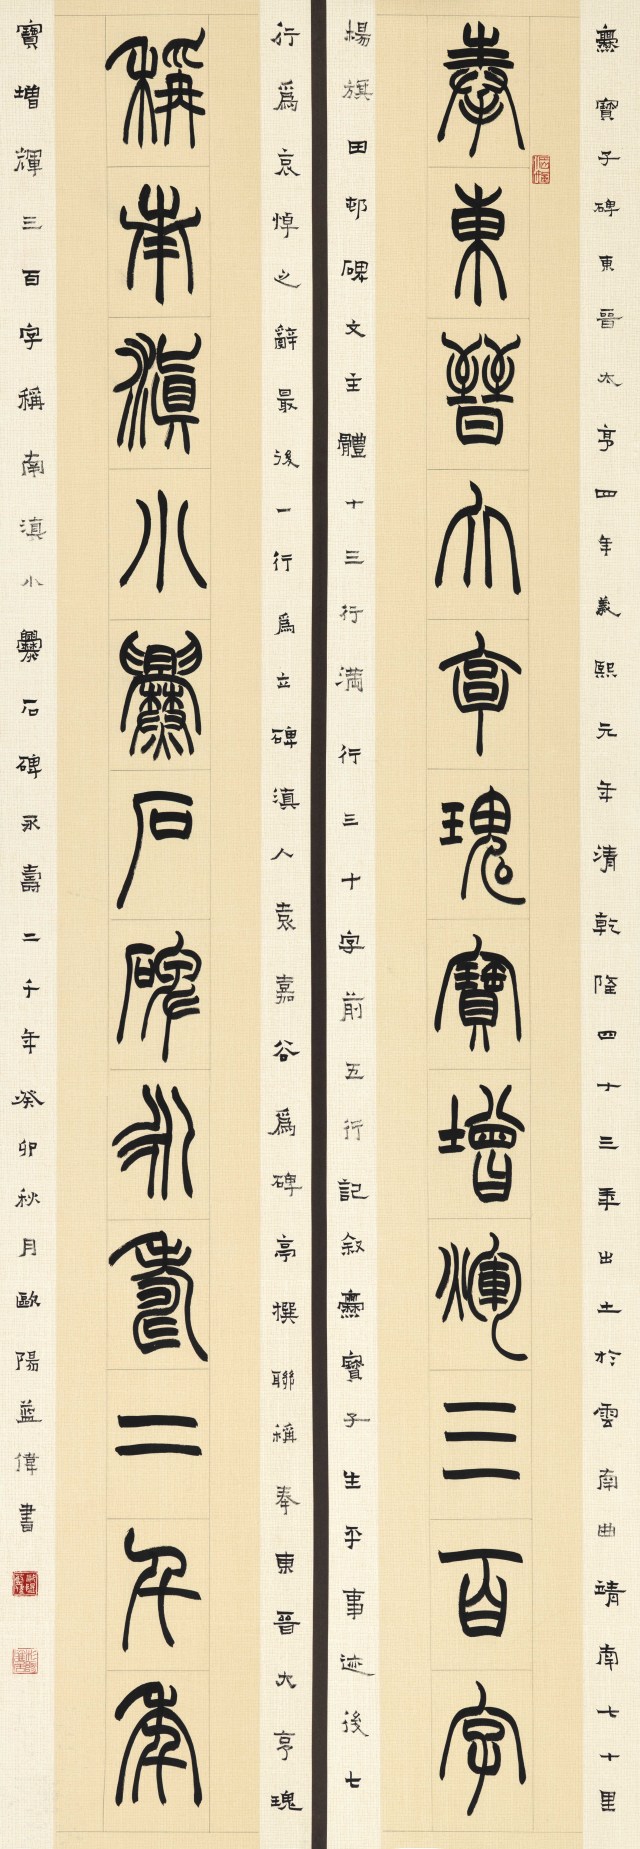 爨寶子碑東晉太亨四年義熙元年清乾隆四十三年出土於雲南曲靖南七十里
奉東晉大亨瑰寶增輝三百字
揚旗田邨碑文主體十三行滿行三十字前五行記敘爨寶子生平事迹後七
行為哀悼之辭最後一行為立碑滇人袁嘉谷為碑亭撰聯稱奉東晉大亨瑰
稱南滇小爨石碑永壽二千年
寶增輝三百字稱南滇小爨石碑永壽二千年癸卯秋月歐陽益偉書